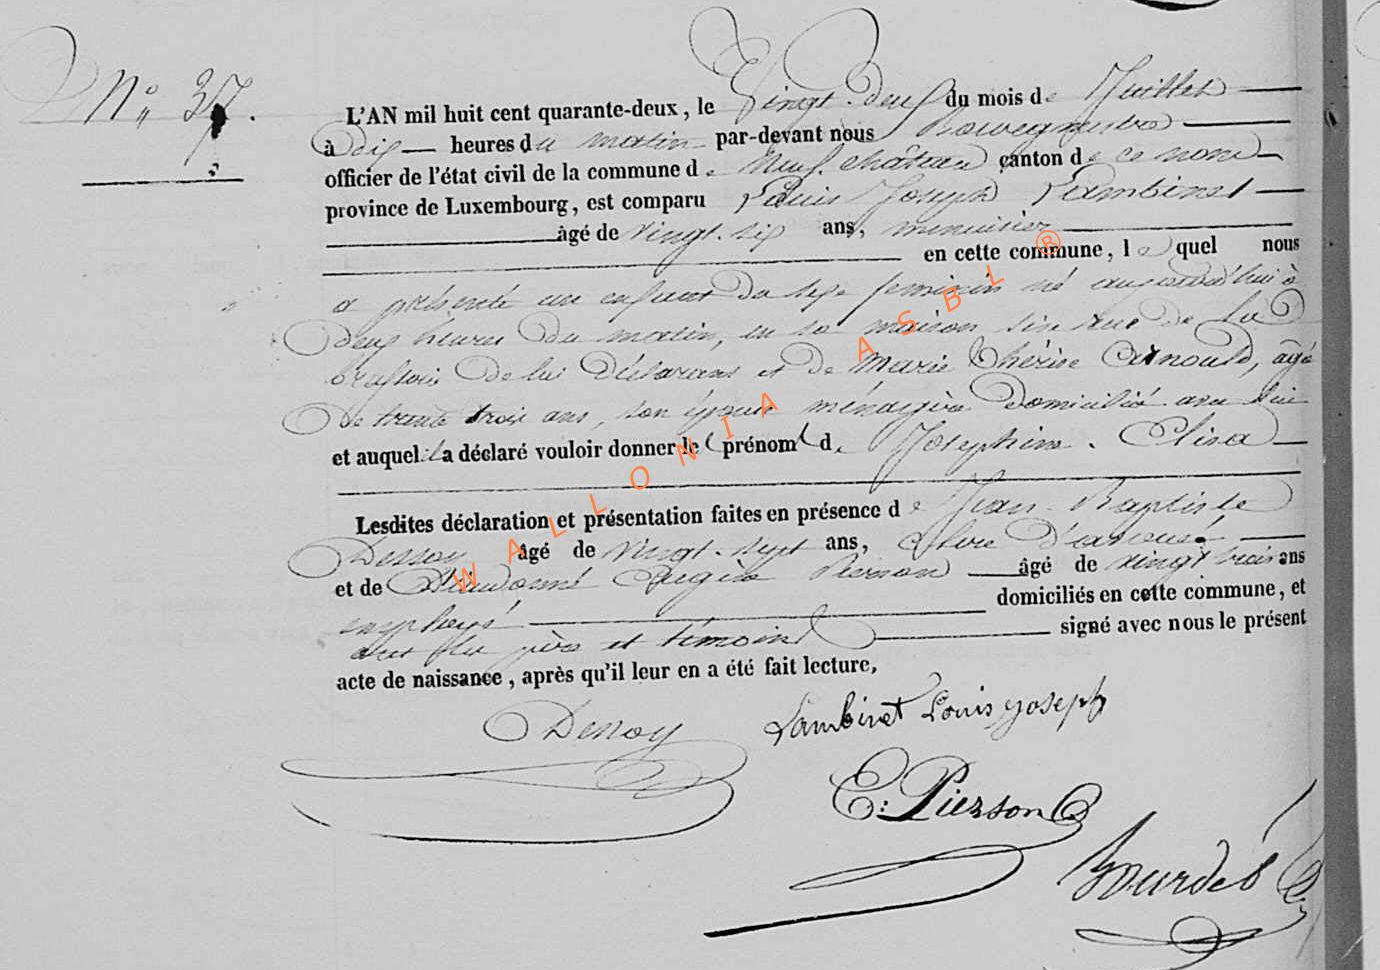 N° 37.
L'AN mil huit cent quarante-deux, le Vingt-deux du mois de Juillet
à dix heures du matin par-devant nous Bourguemestre
officier de l'état civil de la commune de Neufchâteau canton de ce nom
province de Luxembourg, est comparu Louis Joseph Lambinet
âgé de vingt-six ans, menuisier
en cette commune, lequel nous
a présenté un enfant du sexe feminin né aujourd'hui à
deux heures du matin, en sa maison sise rue de la
brasserie de lui Déclarant et de Marie Thérèse Arnould, âgé
de trente trois ans, son épouse ménagère domicilié avec lui
et auquel il a déclaré vouloir donner le prénom de Josephine. Elisa
Lesdites déclaration et présentation faites en présence de Jean-Baptiste
Dessoy âgé de vingt-sept ans, clerc d'avoué
et de Dieudonné Eugène Pierson âgé de vingt trois ans
employé domiciliés en cette commune, et
ont les père et témoins signé avec nous le présent
acte de naissance, après qu'il leur en a été fait lecture,
Dessoy Lambinet Louis joseph
E: Pierson
Bourdes
WALLONIA ASBL ®